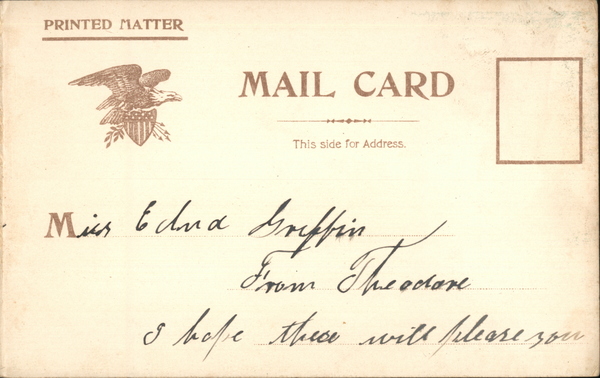 PRINTED MATTER
MAIL CARD
This side for Address.
Miss Edna Griffin
From Theodore
I hope these will please you